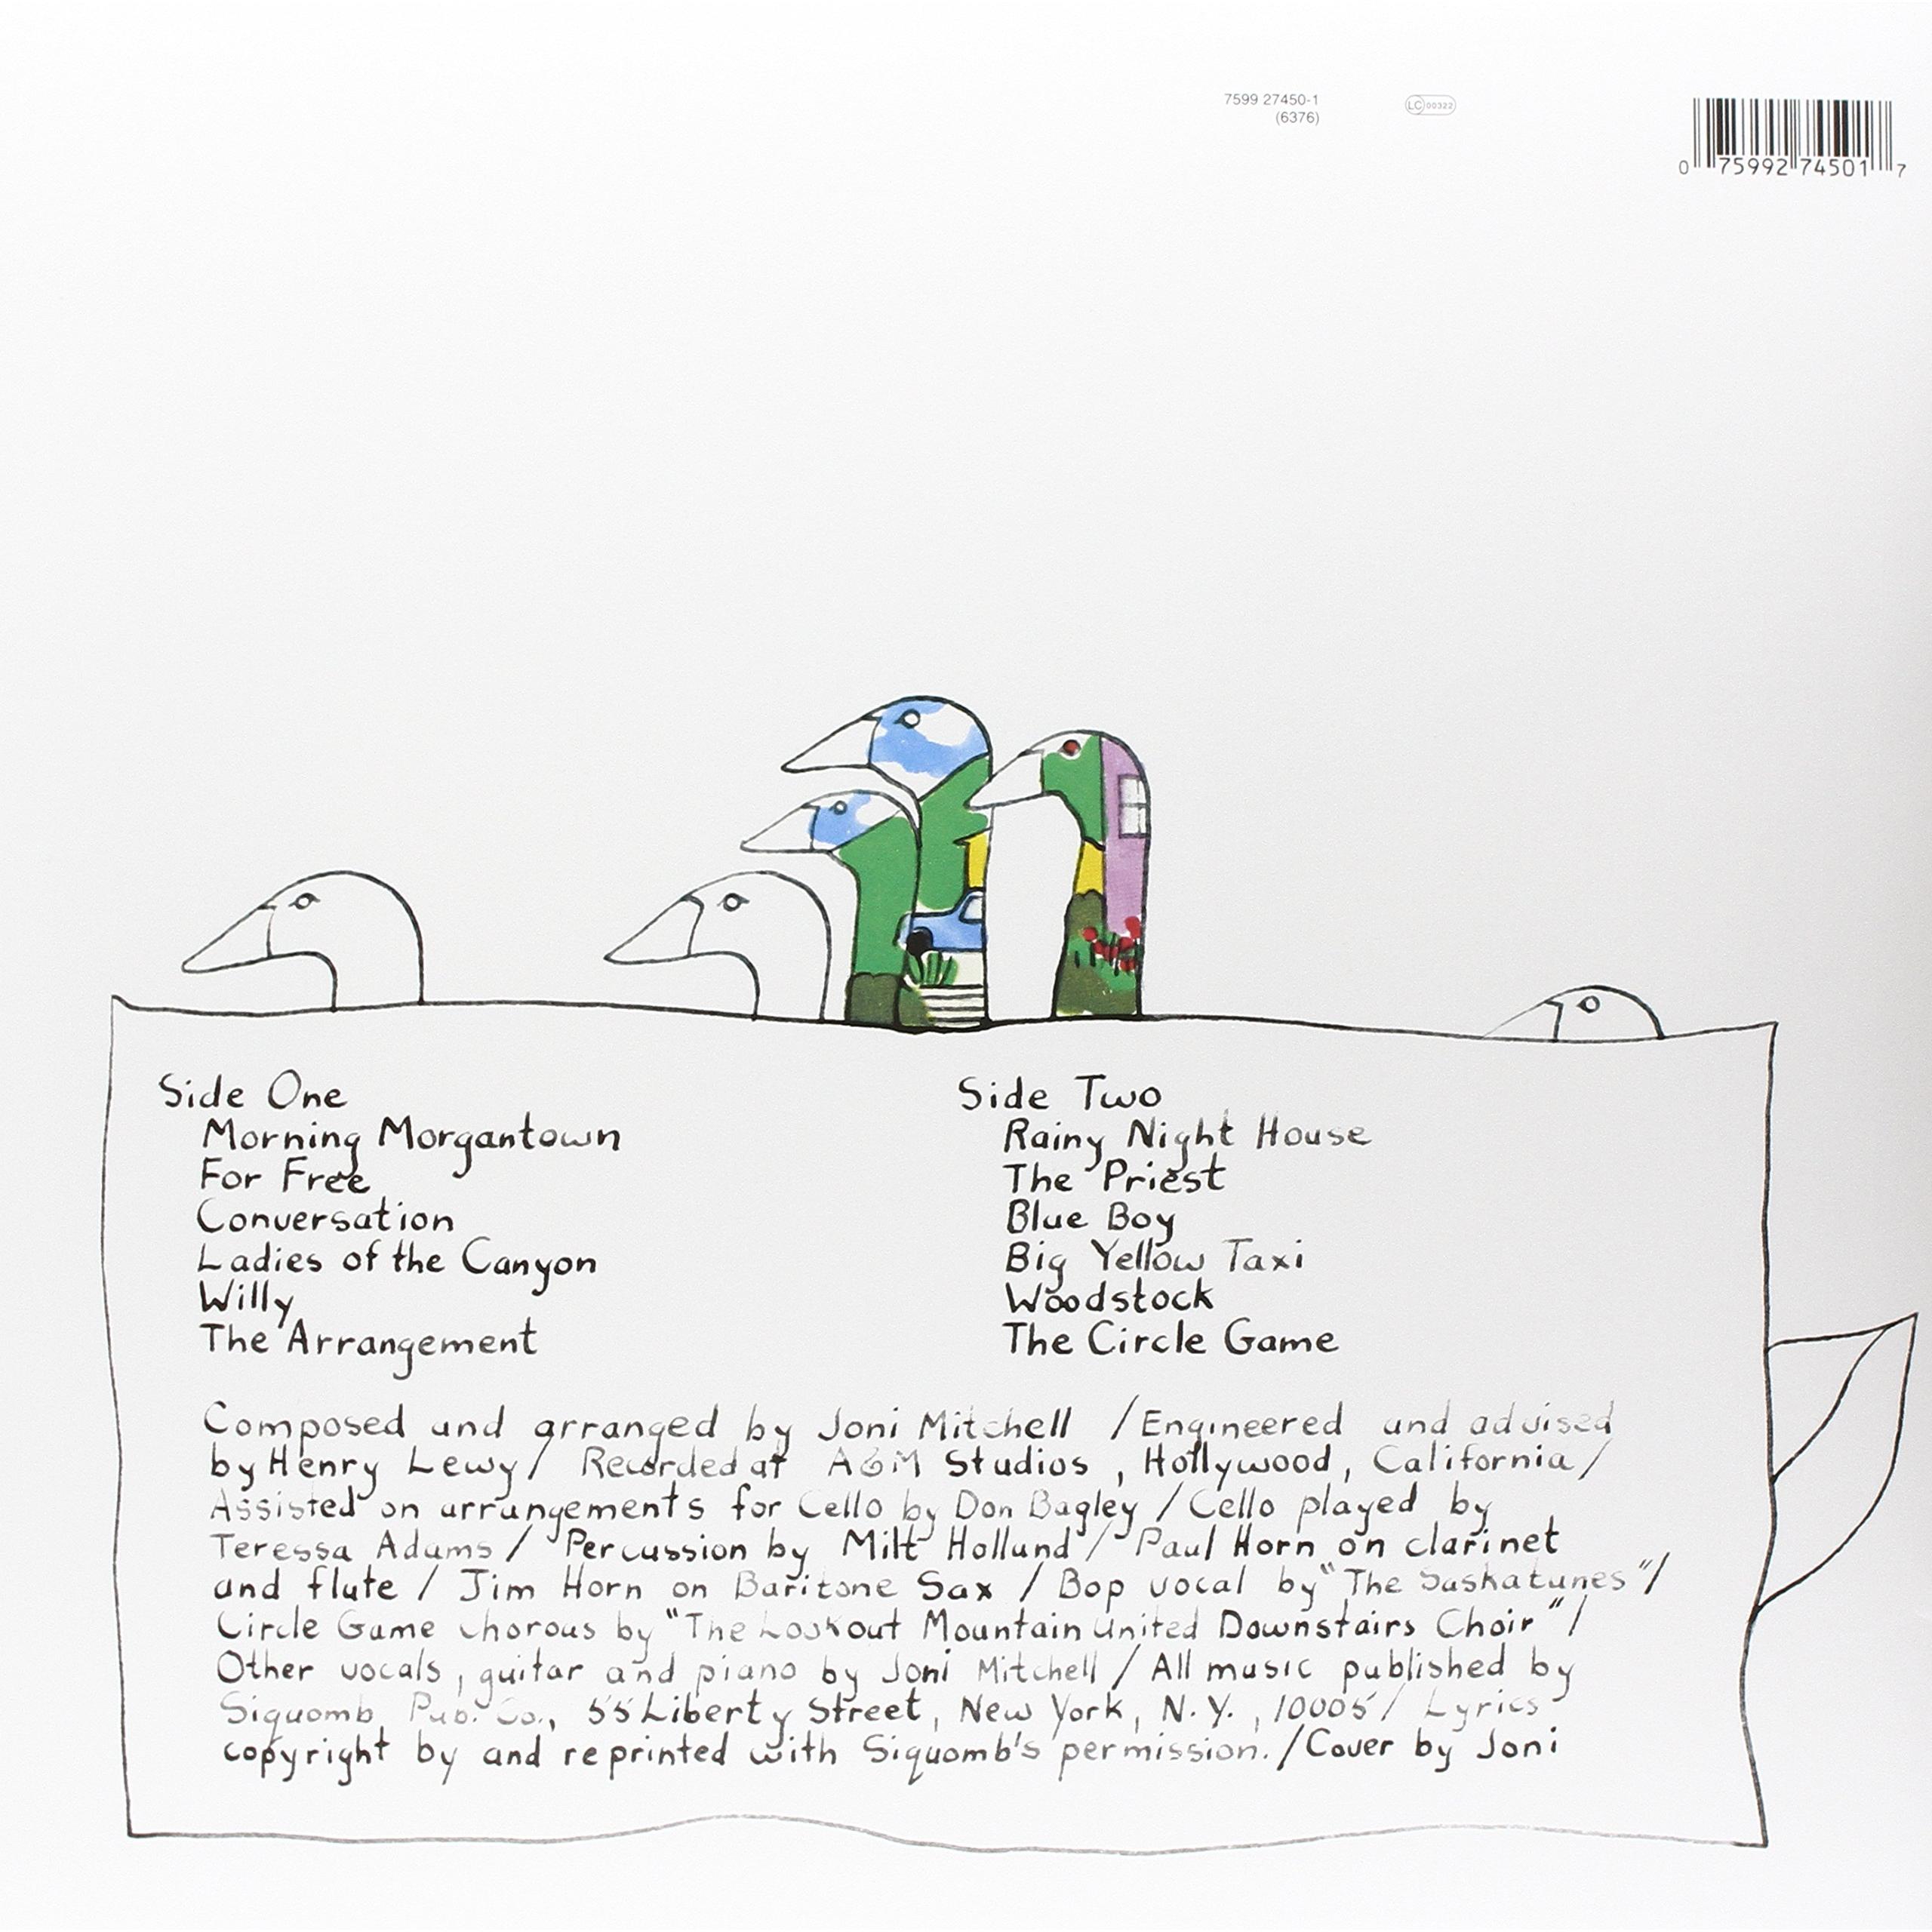 7599 27450-1
(6376)
LC 00322
0 75992 74501 7
Side One
Morning Morgantown
For Free
Conversation
Ladies of the Canyon
Willy
The Arrangement
Side Two
Rainy Night House
The Priest
Blue Boy
Big Yellow Taxi
Woodstock
The Circle Game
Composed and arranged by Joni Mitchell / Engineered and advised
by Henry Lewy / Recorded at A&M Studios, Hollywood, California /
Assisted on arrangements for Cello by Don Bagley / Cello played by
Teressa Adams / Percussion by Milt Holland / Paul Horn on clarinet
and flute / Jim Horn on Baritone Sax / Bop vocal by "The Saskatunes" /
Circle Game chorous by "The Lookout Mountain United Downstairs Choir" /
Other vocals, guitar and piano by Joni Mitchell / All music published by
Siquomb Pub. Co., 55 Liberty Street, New York, N.Y., 10005 / Lyrics
copyright by and reprinted with Siquomb's permission. / Cover by Joni